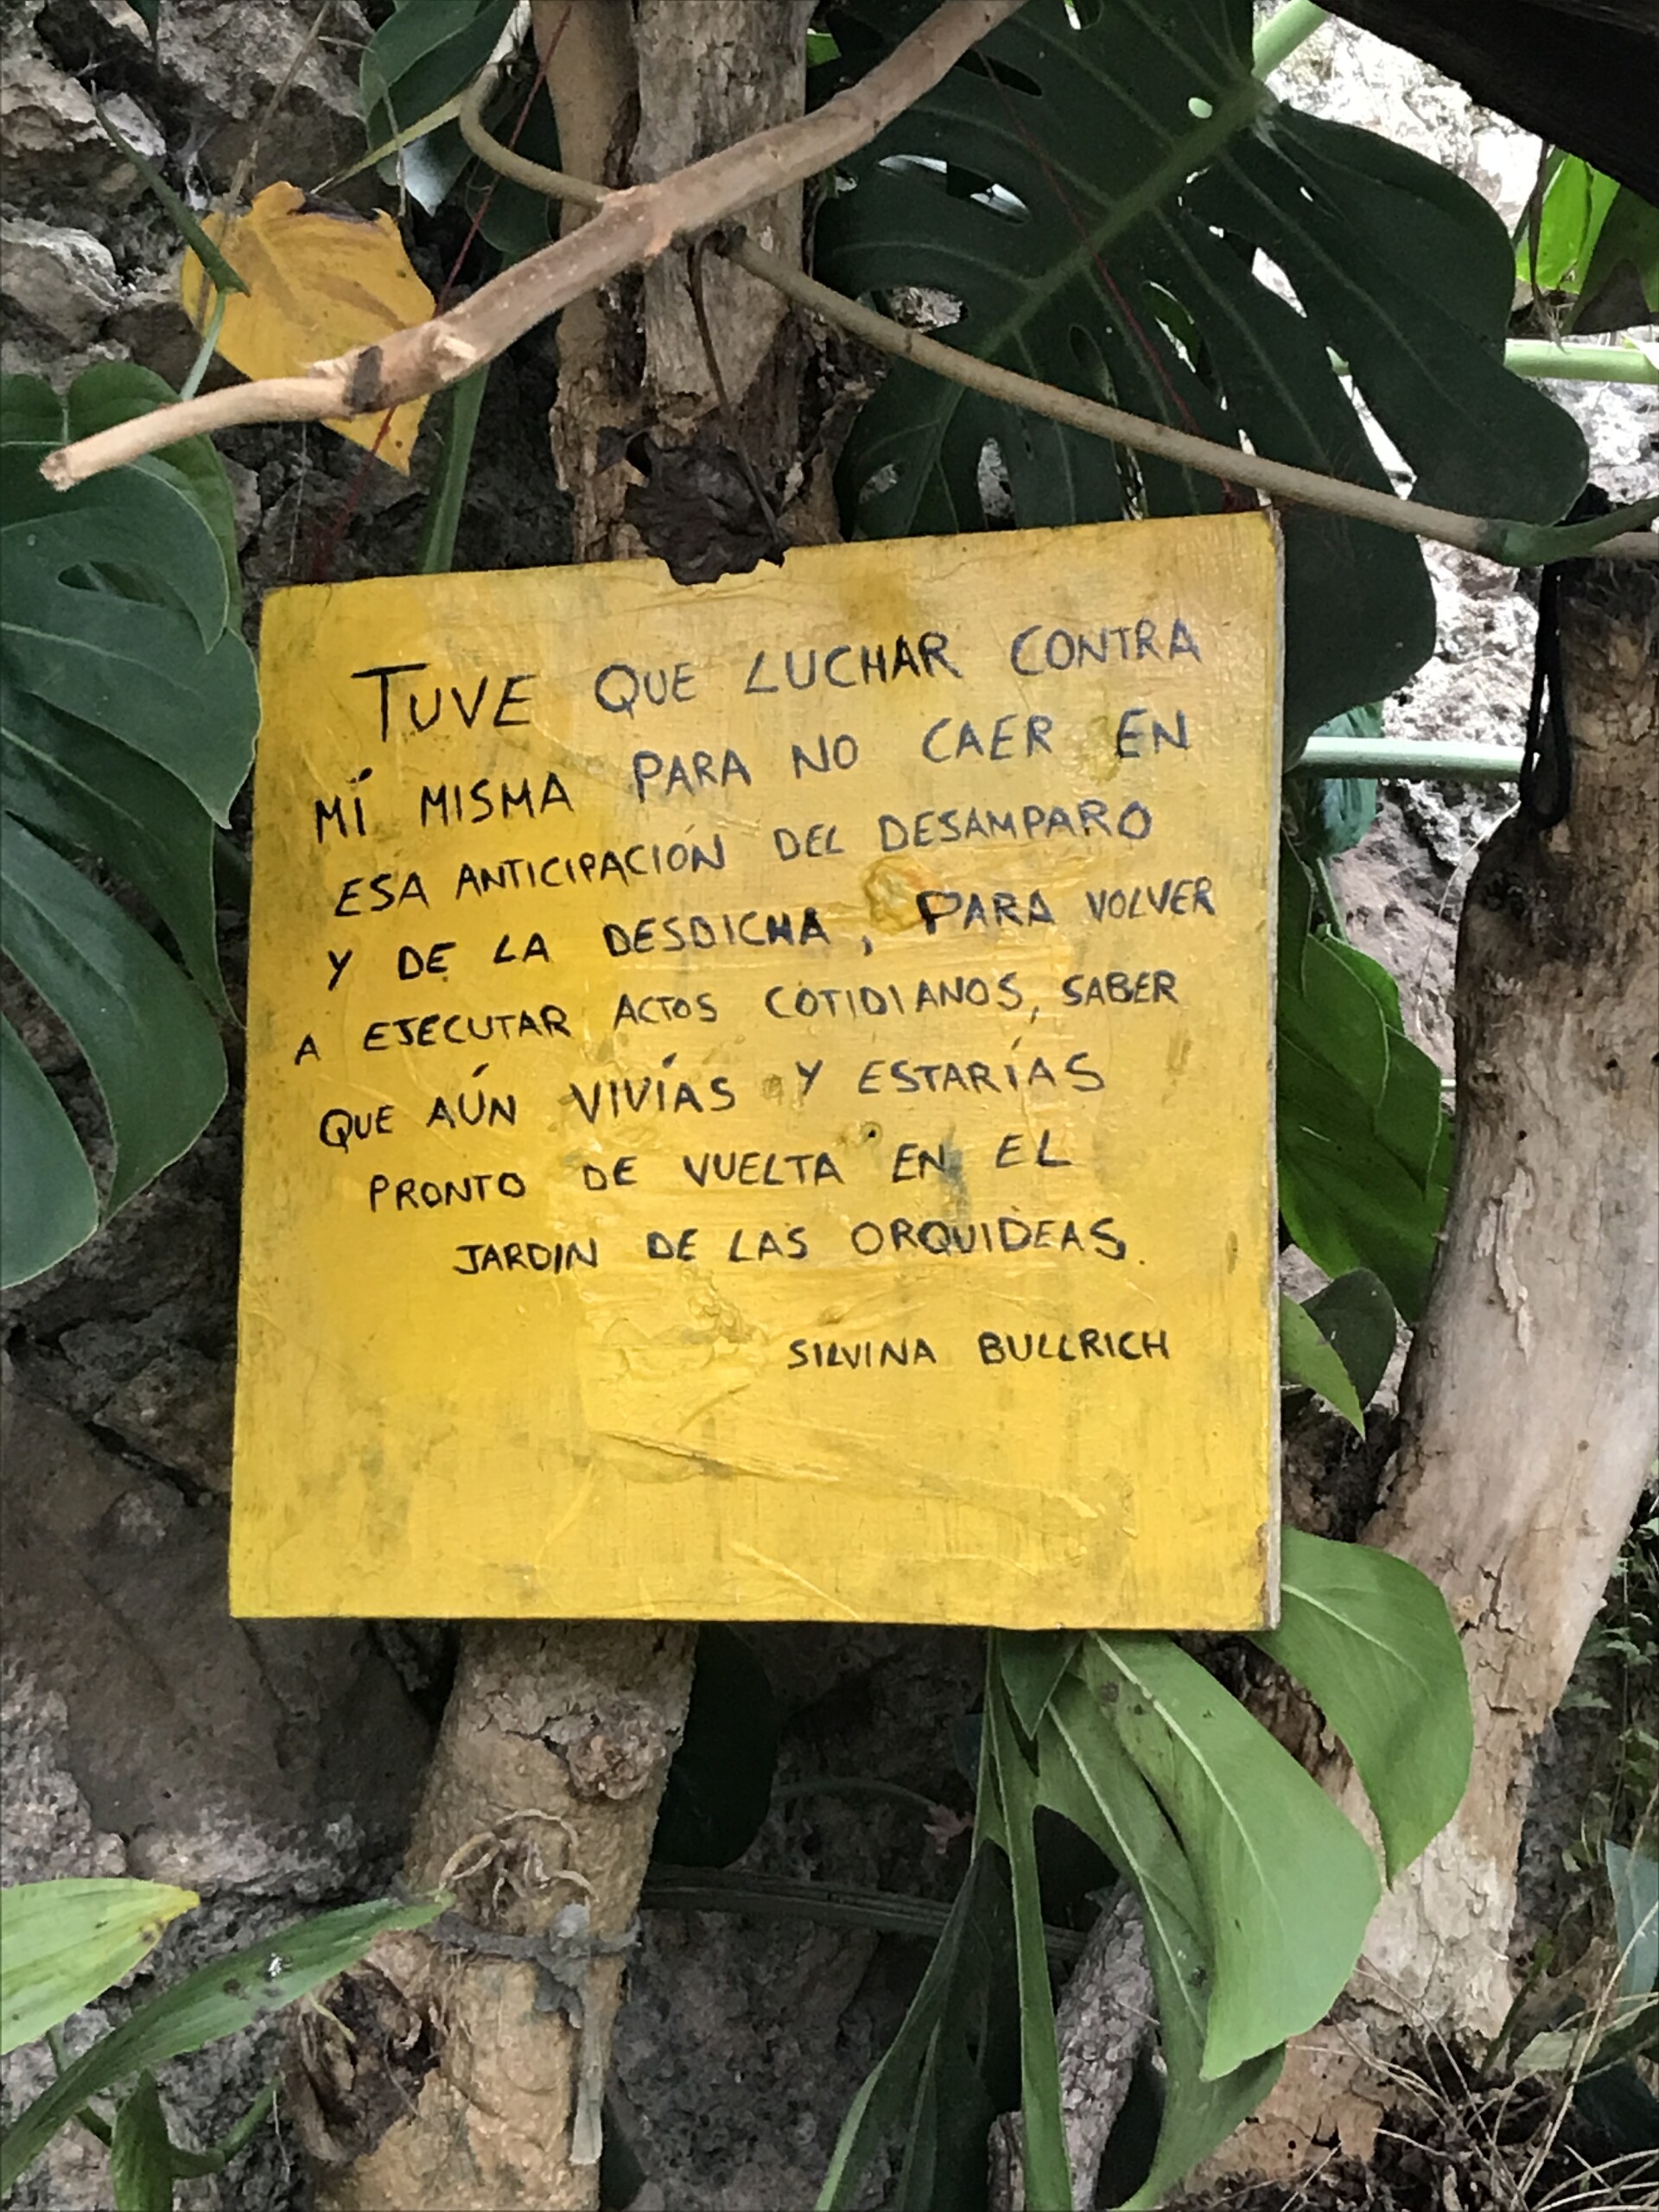 TUVE QUE LUCHAR CONTRA
MÍ MISMA PARA NO CAER EN
ESA ANTICIPACIÓN DEL DESAMPARO
Y DE LA DESDICHA, PARA VOLVER
A EJECUTAR ACTOS COTIDIANOS, SABER
QUE AÚN VIVÍAS Y ESTARÍAS
PRONTO DE VUELTA EN EL
JARDIN DE LAS ORQUIDEAS.
SILVINA BULLRICH